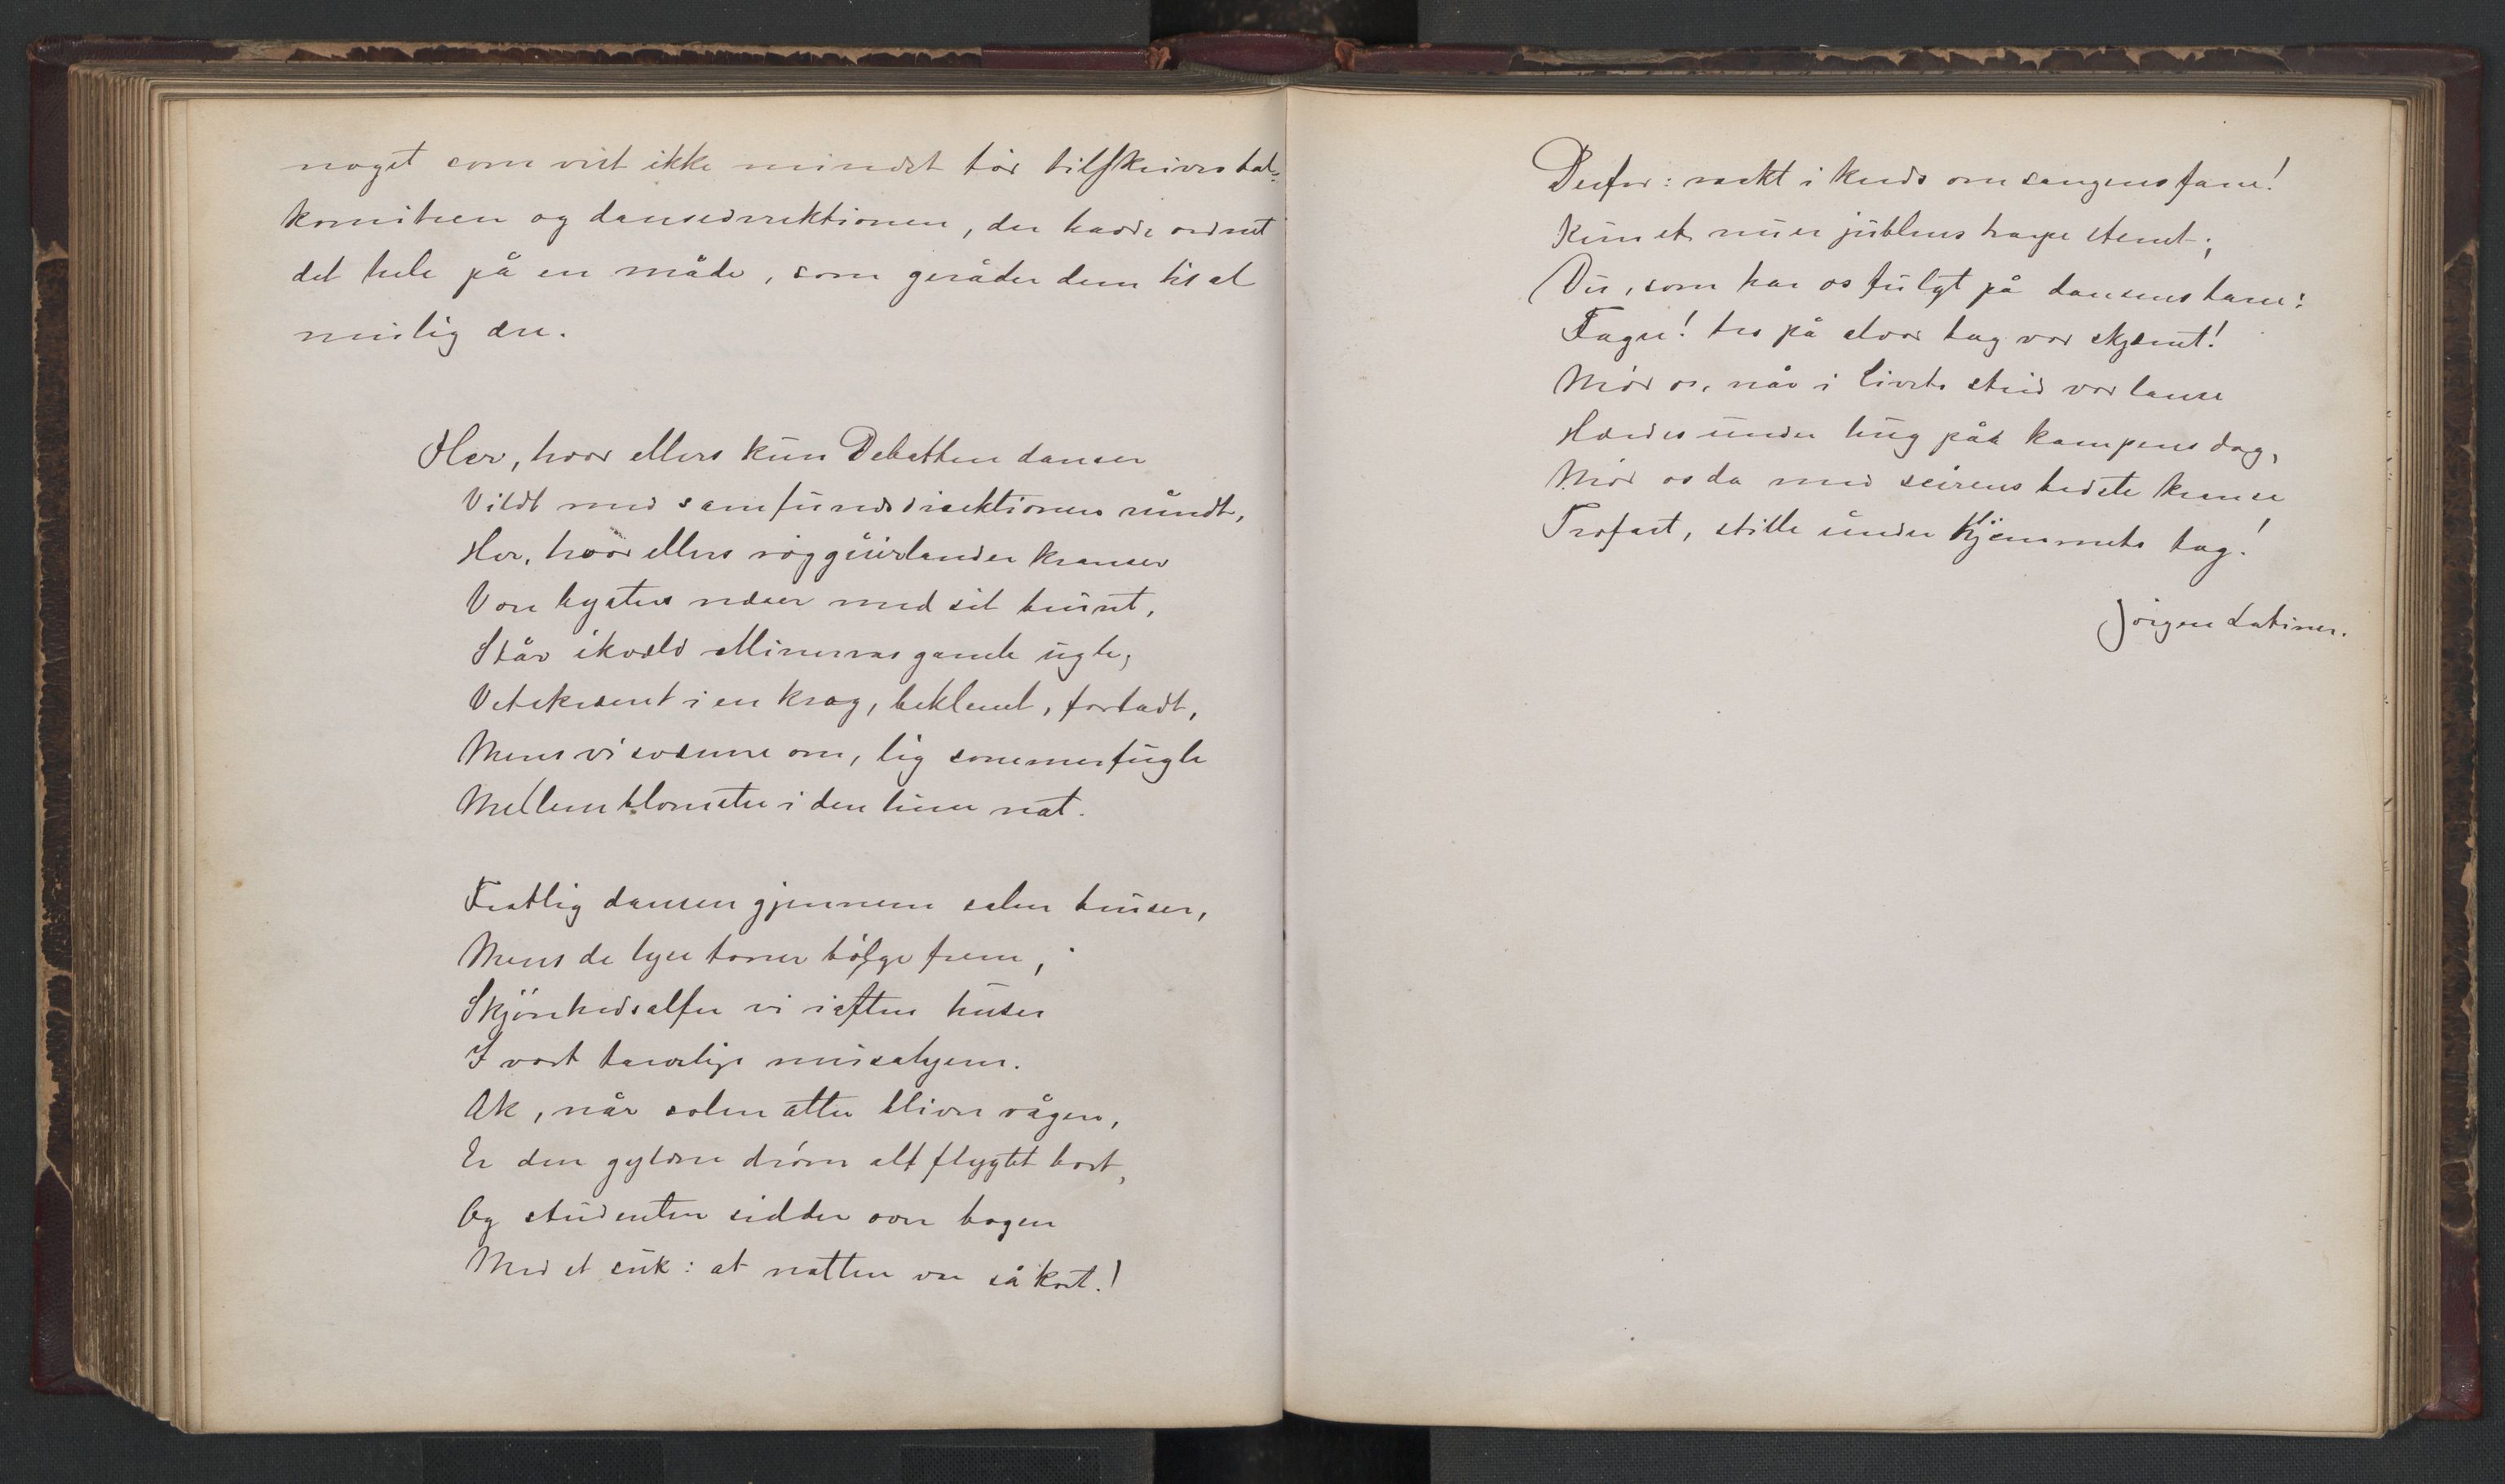 noget som vist ikke mindst bör tilskrives bal-
komiteen og dansedirektionen, der havde ordnet
det hele på en måde, som geråder dem til al
mulig ære.
Her, hvor ellers kun Debatten danser
Vildt med samfundsdirektionen rundt,
Her, hvor ellers rögguirlander kranser
Vore bysters næser med sit buint,
Står ikvæld Minervas gamle ugle,
Vetskræmt i en krog, beklemt, forladt,
Mens vi sværme om, lig sommerfugle
Mellem blomster i den lune nat.
Festlig dansen gjennem salen bruser,
Mens de lyse toner bölge frem,
Skjönhedsalfer vi iaften huser
I vort tarvelige musahjem.
Ak, når solen atter bliver vågen,
Er den gyldne dröm alt flygtet bort,
Og studenten sidder over bogen
Med et suk: at natten var så kort!
Derfor: raskt i kreds om sangens fane!
Kun et nu er jublens harpe stemt;
Du, som har os fulgt på dansens bane:
Fagre! tro på alvor bag vor skjemt!
Möd os, når i livets strid vor lanse
Hærdes under hug på kampens dag,
Möd os da med seirens bedste kranse
Trofast, stille under hjemmets tag!
Jörgen Latiner.